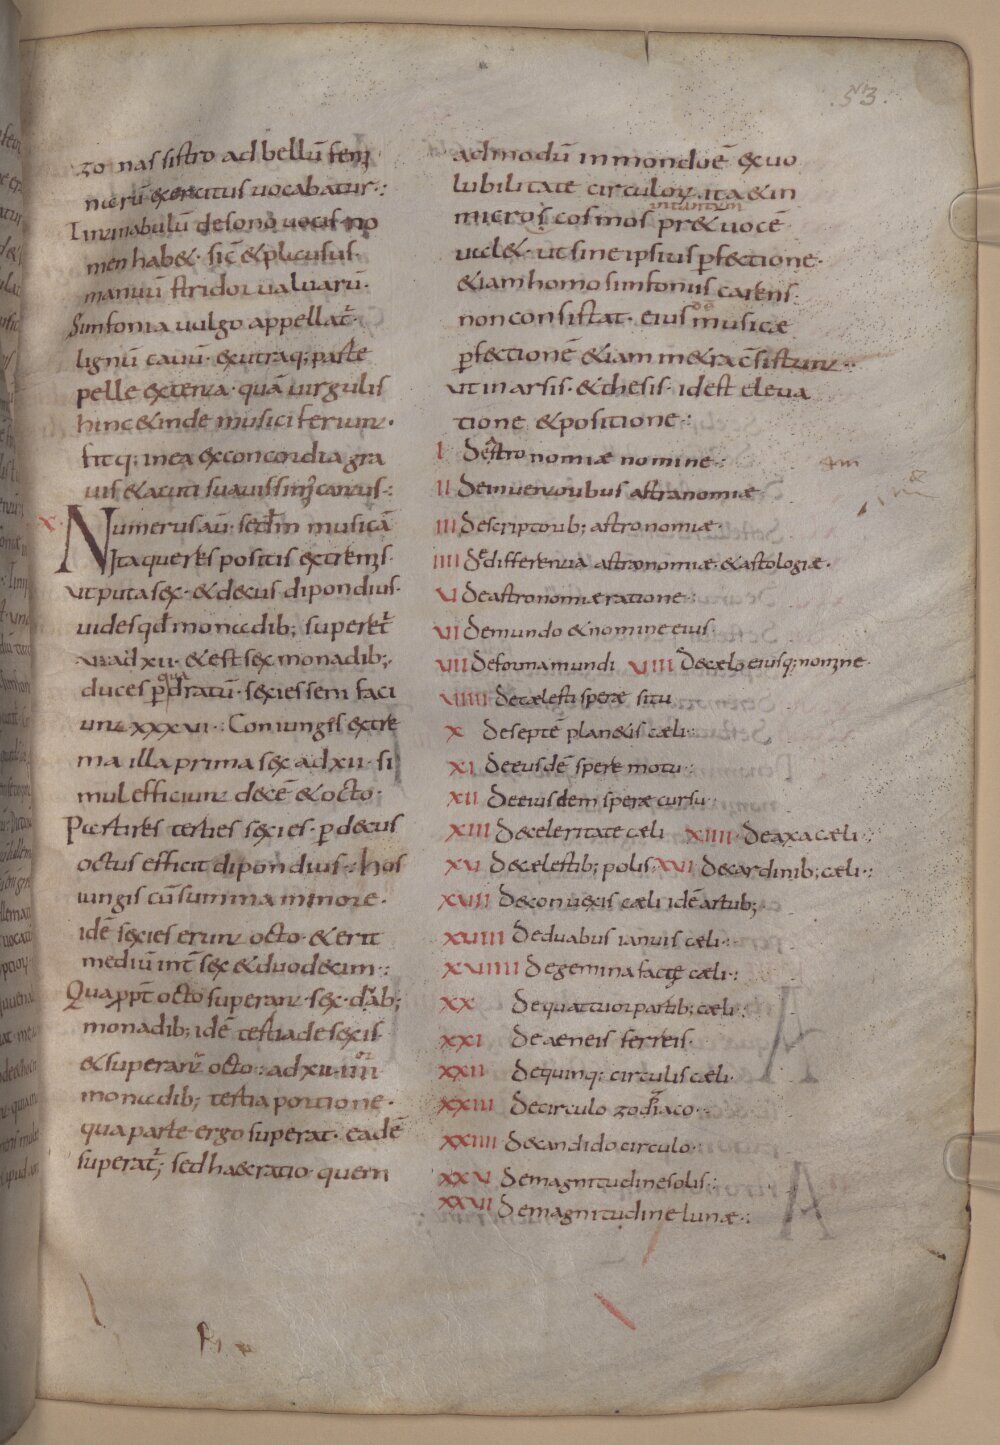 53.
zonas sistro ad bellū femi
nerū exercitus uocabatur·:
Tintinabulū de sono uocis no
men habet· sic̄ et plausus·
manuū stridor ualuarū·
Simfonia uulgo appellat᷑
lignū cauū· ex utraq; parte
pelle extenta· quā uirgulis
hinc et inde musici feriunt·
fitq; in ea ex concordia gra
uis et acuti suauissimꝰ cantus·:
X· Numerus aū· sedm̄ musicā
Ita queres positis extremis·
ut puta sex· et decus dipondius·
uides qđ monadib; superet᷑
ad xii· et est sex monadib;·
duces p quadratū· sexies seni faci
unt xxxvi·: Coniungis extre
ma illa prima sex ad xii· si
mul efficiunt decē et octo·
Partires terties sexies· p decus
octus efficit dipondius·: hos
iungis cū summa minore·
idē sexies erunt octo· et erit
mediū int̄ sex et duodecim·:
Quapp̄t octo superant· sex· duab;
monadib; idē tertia de sexis·
et superant᷑ octo· ad xii· iiii
monadib; tertia portione·
qua parte ergo superat· eadē
superat᷑; sed haec ratio quem
admodū in mondo ē ex uo
lubilitate circuloꝝ· ita et in
micros cosmos tantum pret uocē
ualet· ut sine ipsius pfectione·
etiam homo simfoniis carens·
non consistat· eius musicae
pfectionē etiam metra c̄sistunt·:
ut in arsis· et thesis· id est eleua
tione et positione·:
I De astronomiae nomine·:
II De inuentoribus astranomiae
III De scriptorib; astronomiae·
IIII De differentia astronomiae· et astologiae·
V De astronomiae ratione·:
VI De mundo et nomine eius·
VII De forma mundi VIII De caelo eiusq; nomine·
VIIII De caelesti sperae situ
X De septē planetis caeli·:
XI De eiusdē spere motu·:
XII De eiusdem sperae cursu·
XIII De celeritate caeli XIIII· De axa caeli·:
XV De caelestib; polis· XVI De cardinib; caeli·:
XVII De conuexis caeli idē artub;
XVIII De duabus ianuis caeli·:
XVIIII De gemina faciae caeli·:
XX De quattuor partib; caeli·
XXI De aeneis ferreis·
XXII De quinq; circulis caeli·
XXIII De circulo zodiaco·:
XXIIII De candido circulo·
XXV De magnitudine solis·:
XXVI De magnitudine lunae·: